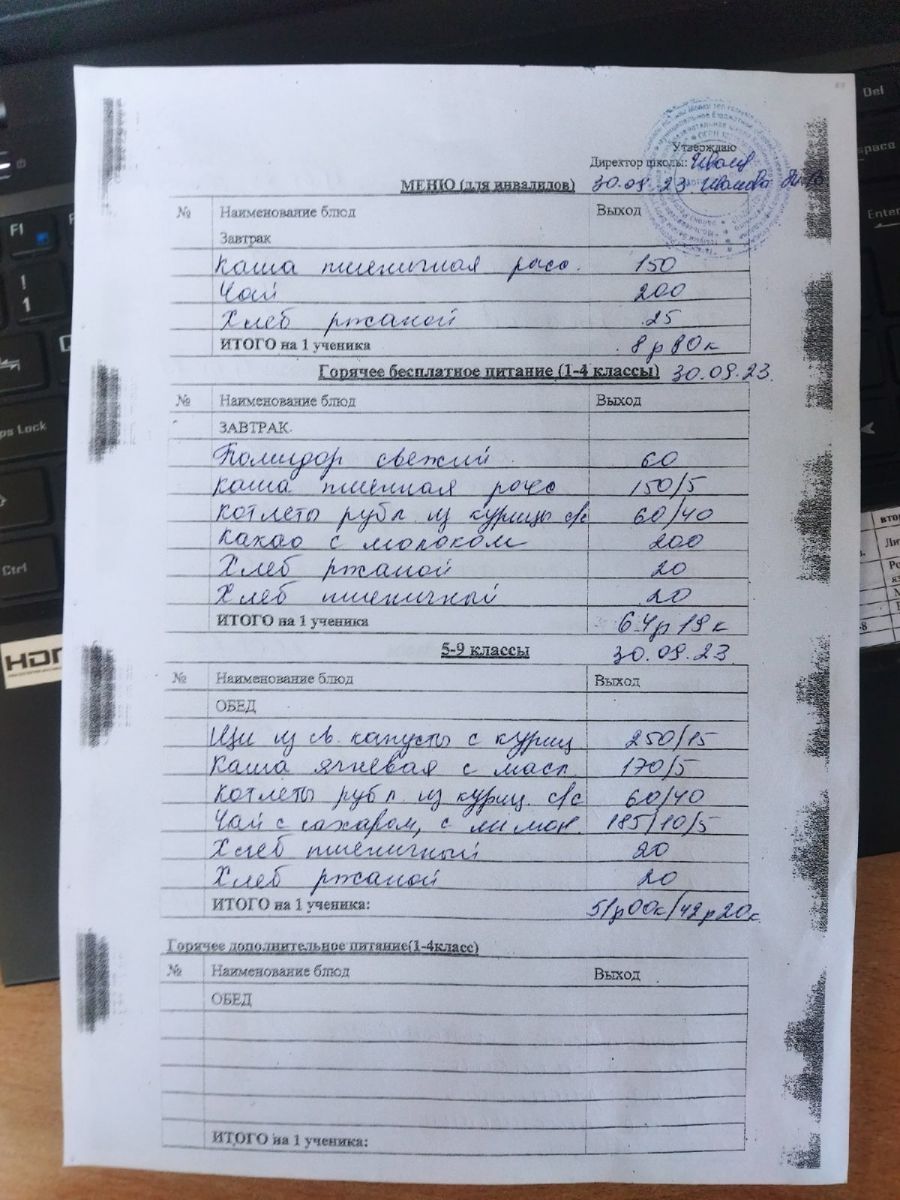 Утверждаю
Директор школы:
МЕНЮ (для инвалидов) 30.09.23 Иванова
№ Наименование блюд Выход
Завтрак
Каша пшеничная расс. 150
Чай 200
Хлеб ржаной 25
ИТОГО на 1 ученика 8р80к
Горячее бесплатное питание (1-4 классы) 30.09.23.
№ Наименование блюд Выход
ЗАВТРАК.
Помидор свежий 60
Каша пшенная расс 150/5
Котлеты рубл из курицы с/с 60/40
Какао с молоком 200
Хлеб ржаной 20
Хлеб пшеничный 20
ИТОГО на 1 ученика 64р19к
5-9 классы 30.09.23.
№ Наименование блюд Выход
ОБЕД
Щи из св. капусты с куриц 250/15
Каша ячневая с масл. 170/5
Котлеты рубл из куриц. с/с 60/40
Чай с сахаром, с лимон. 185/10/5
Хлеб пшеничный 20
Хлеб ржаной 20
ИТОГО на 1 ученика: 51р00к/42р20к
Горячее дополнительное питание(1-4класс)
№ Наименование блюд Выход
ОБЕД
ИТОГО на 1 ученика:
F1
!
1
Caps Lock
Ctrl
HDMI
Del
Enter